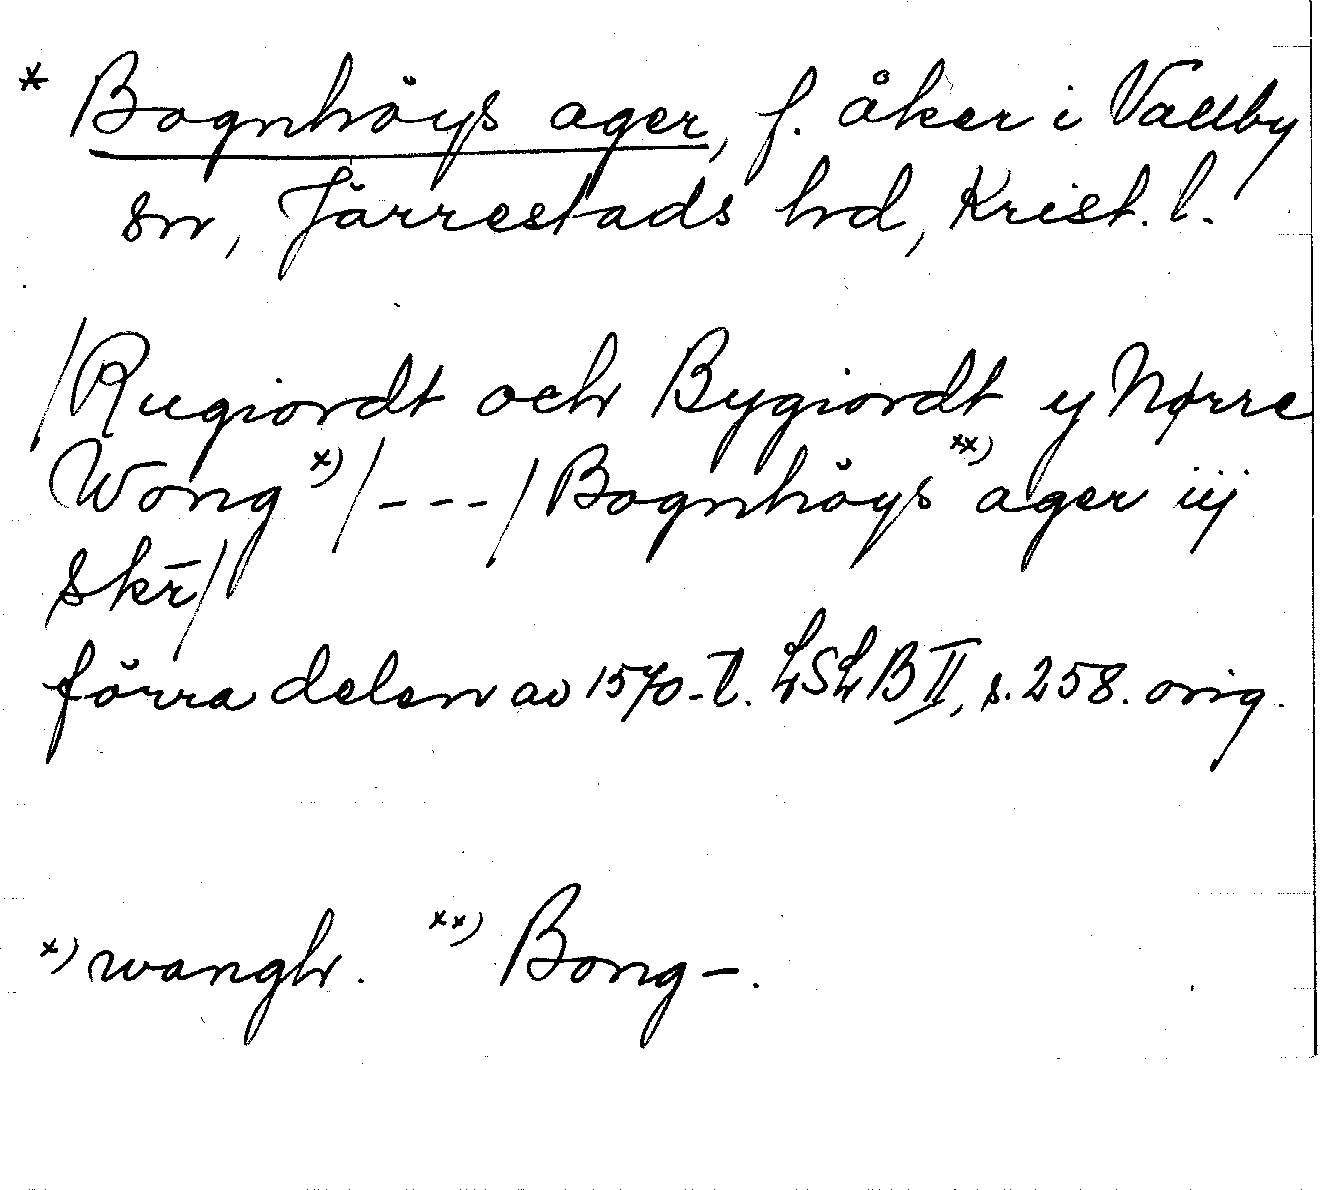 * Bognhöys ager, f. åker i Vallby
sn, Järrestads hd, Krist. l.
/Rugiordt och Bygiordt y Nørre
Wong x)/---/Bognhöys xx) ager iij
skr̄/
förra delen av 1570-t. LSLB II, s. 258. orig.
x) wangh. xx) Bong-.